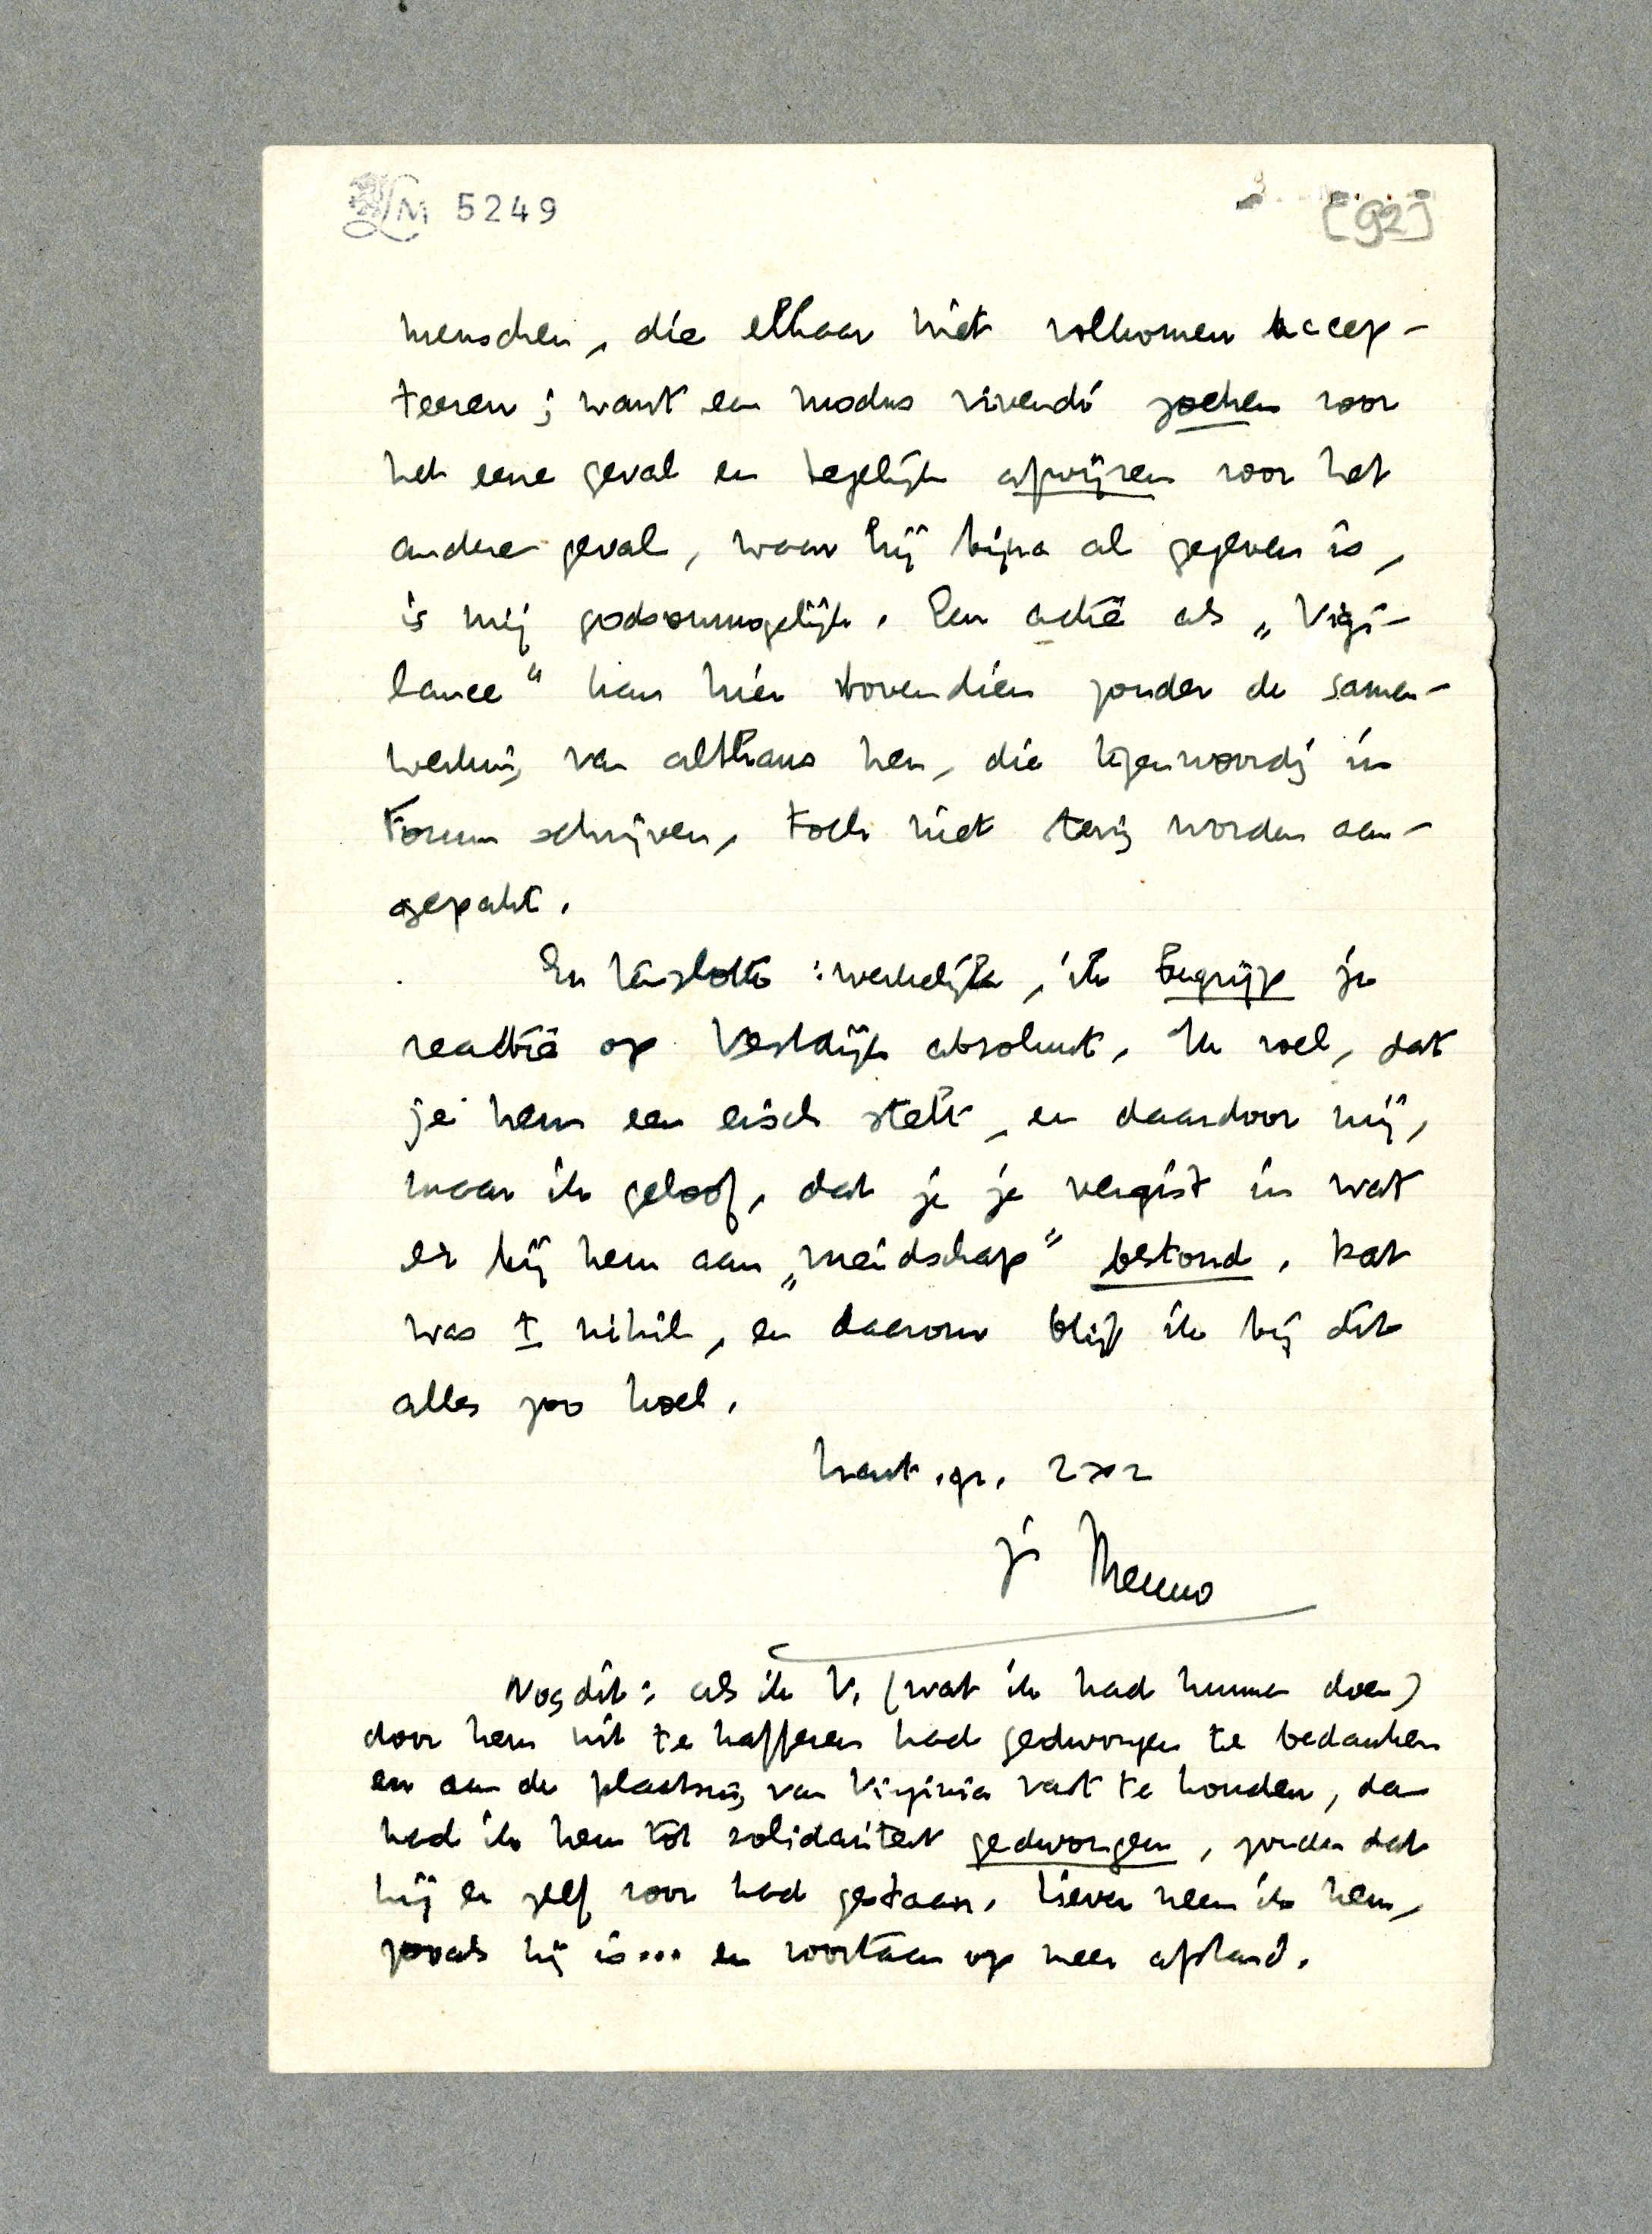 LM 5249
[92]
menschen, die elkaar niet volkomen accep-
teeren; want een modus vivendi zoeken voor
het eene geval en tegelijk afwijzen voor het
andere geval, waar hij bijna al gegeven is,
is mij godsonmogelijk. Een actie als „Vigi-
lance" kan hier bovendien zonder de samen-
werking van althans hen, die tegenwoordig in
Forum schrijven, toch niet stevig worden aan-
gepakt.
En tenslotte: werkelijk, ik begrijp je
reactie op Vestdijk absoluut. Ik voel, dat
je hem een eisch stelt, en daardoor mij,
maar ik geloof, dat je je vergist in wat
er bij hem aan „vriendschap" bestond. Dat
was ± nihil, en daarom blijf ik bij dit
alles zoo koel.
hart. gr. 2x2
je Menno
Nog dit: als ik V. (wat ik had kunnen doen)
door hem uit te kafferen had gedwongen te bedanken
en aan de plaatsing van Virginia vast te houden, dan
had ik hem tot solidariteit gedwongen, zonder dat
hij er zelf voor had gestaan. Liever neem ik hem,
zooals hij is... en voortaan op meer afstand.